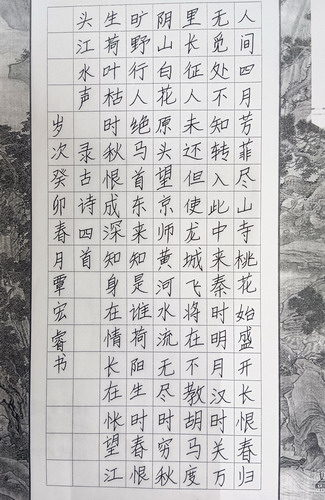 人间四月芳菲尽山寺桃花始盛开长恨春归
无觅处不知转入此中来秦时明月汉时关万
里长征人未还但使龙城飞将在不教胡马度
阴山白花原头望京师黄河水流无尽时穷秋
旷野行人绝马首东来知是谁荷阳生时春恨
生荷叶枯时秋恨成深知身在情长在怅望江
头江水声 录古诗四首
岁次癸卯春月覃宏睿书